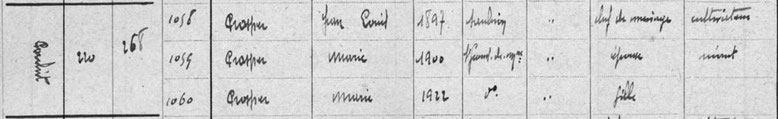 220 268 1058 Prosper Jean Louis 1897 " chef de ménage cultivateur
1059 Prosper Marie 1900 " épouse néant
1060 Prosper Marie 1922 d° " fille